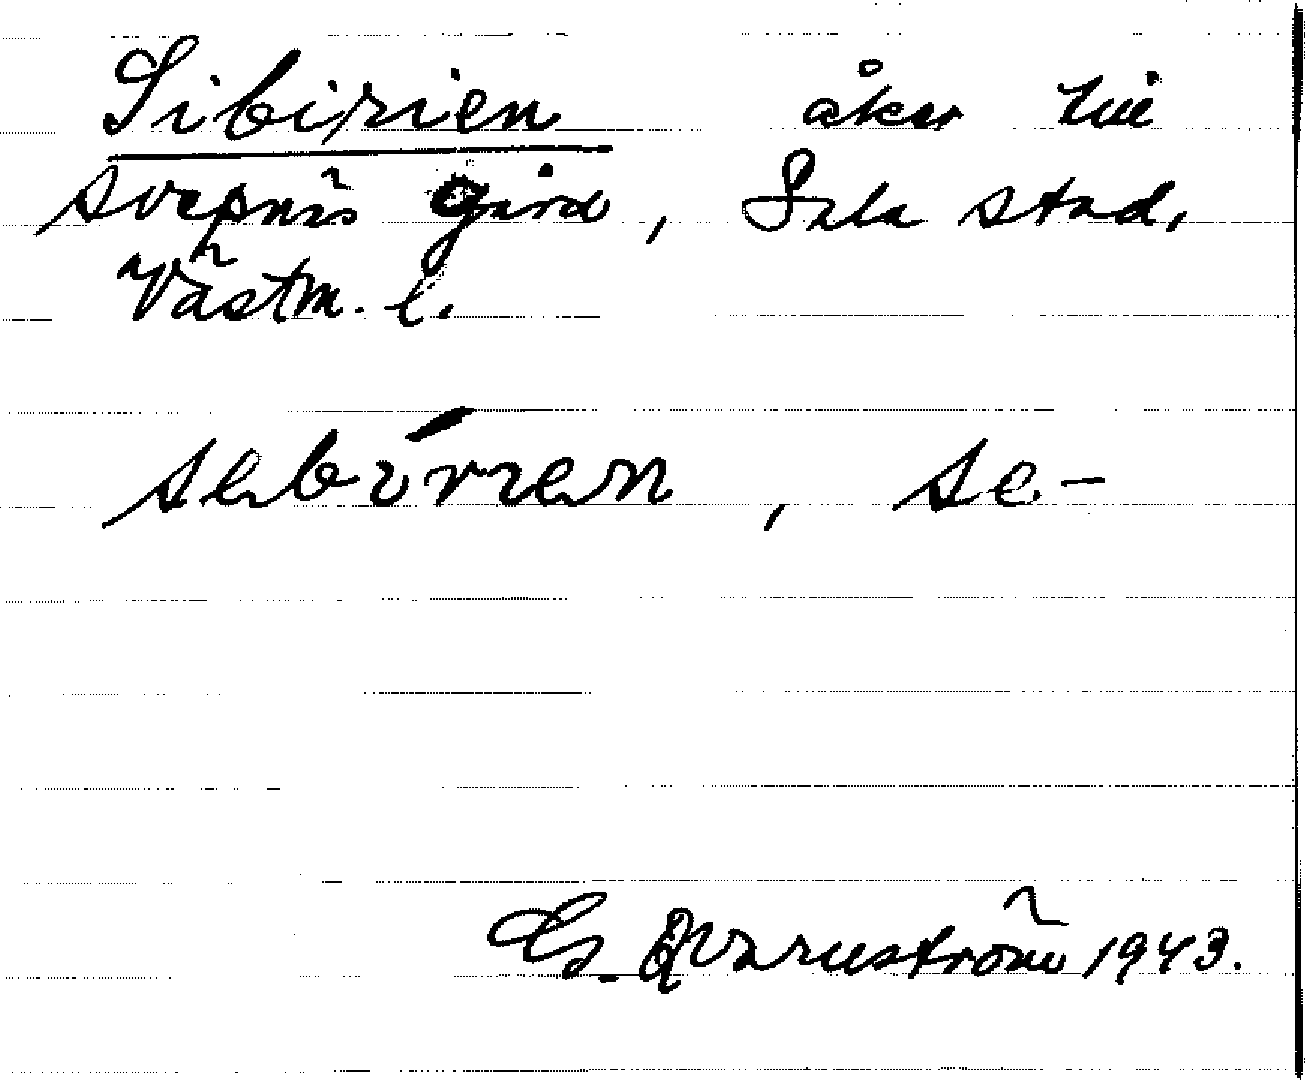 Sibirien åker till
Svepnäs gård, Sala stad,
Västm. l.
sebírien, se-
G. Qvarnström 1943.